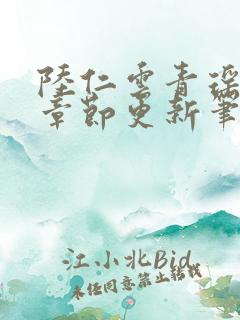 陆仁云青瑶
章节更新筆
江小北Bid
未经同意禁止转载